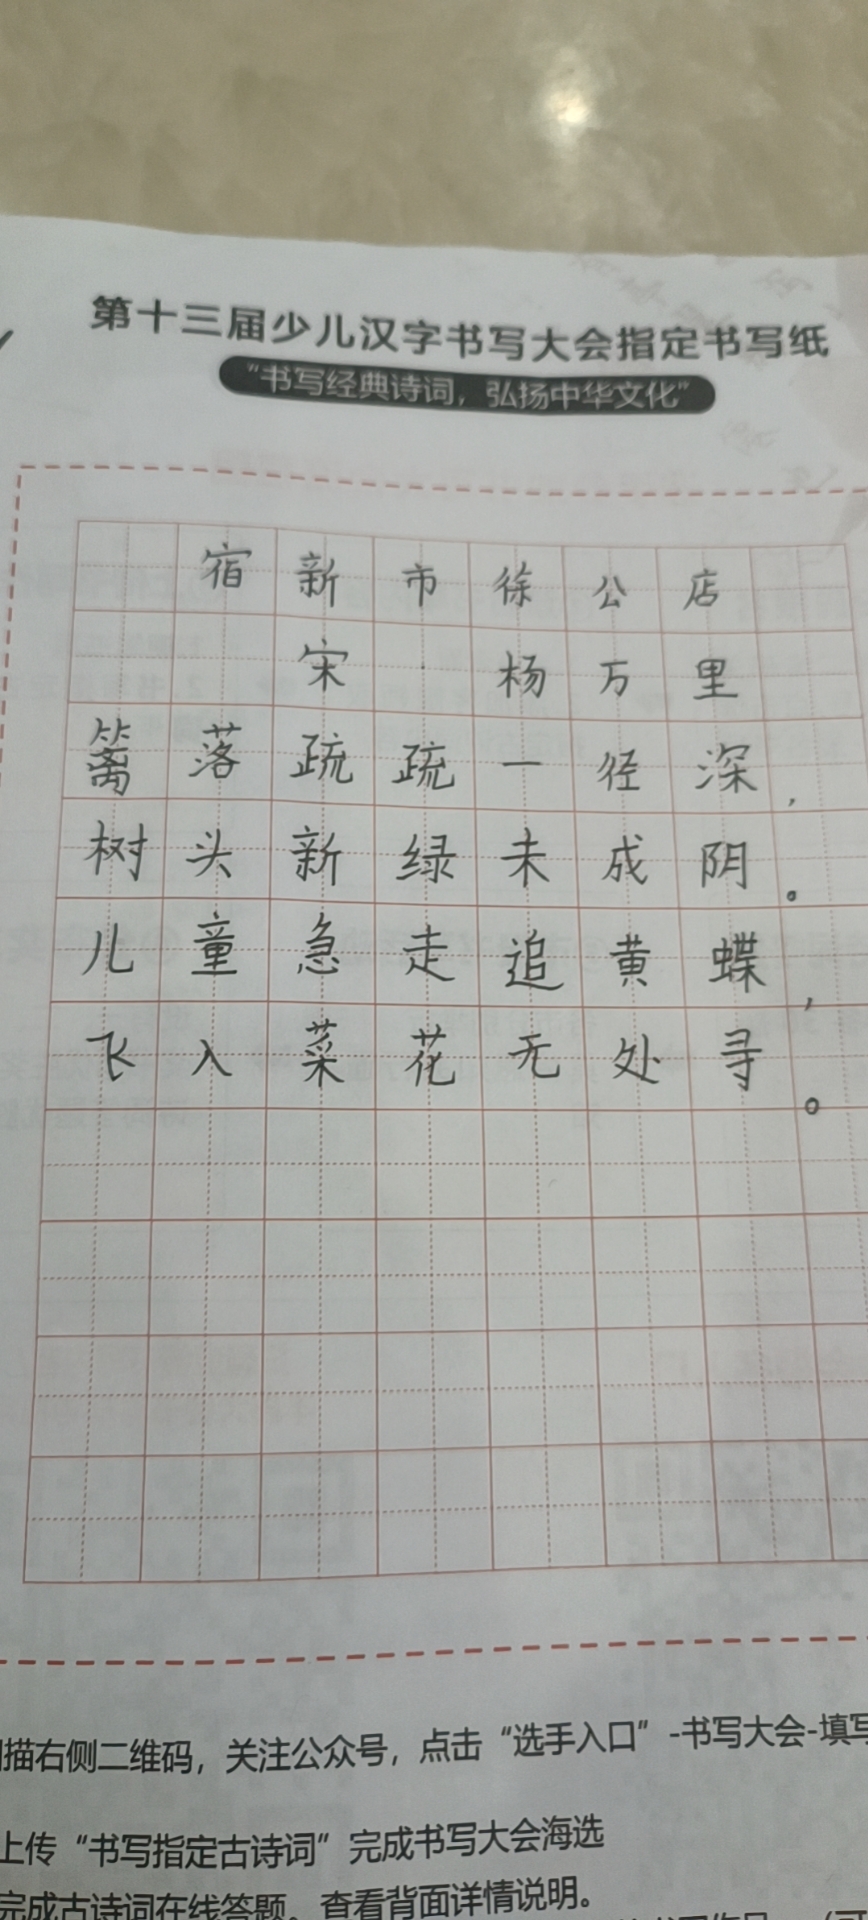 第十三届少儿汉字书写大会指定书写纸
“书写经典诗词，弘扬中华文化”
宿新市徐公店
宋·杨万里
篱落疏疏一径深，
树头新绿未成阴。
儿童急走追黄蝶，
飞入菜花无处寻。
描右侧二维码，关注公众号，点击“选手入口”-书写大会-填写
上传“书写指定古诗词”完成书写大会海选
完成古诗词在线答题。查看背面详情说明。